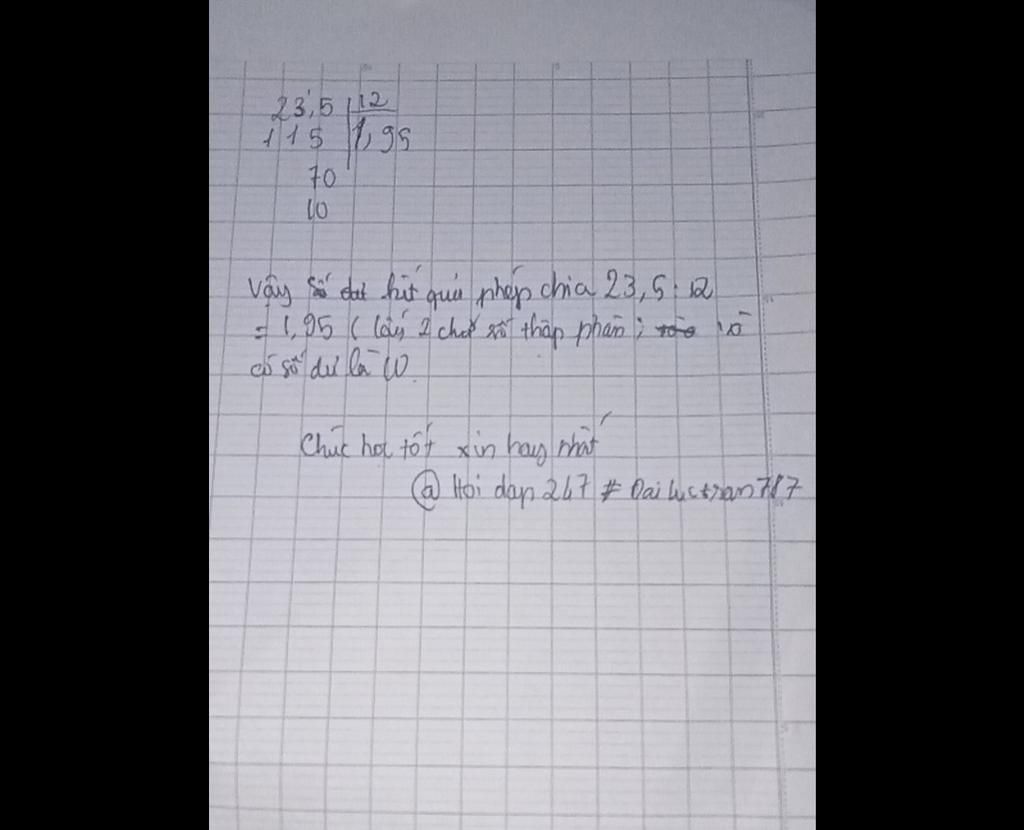 23,5 12
115 1,95
70
10
Vậy số dư hết quả phép chia 23,5 : 12
= 1,95 (lấy 2 chữ số thập phân; và
có số dư là 10.
Chúc học tốt xin hay nhất
@ Hoi dap 247 # Dai luctran787